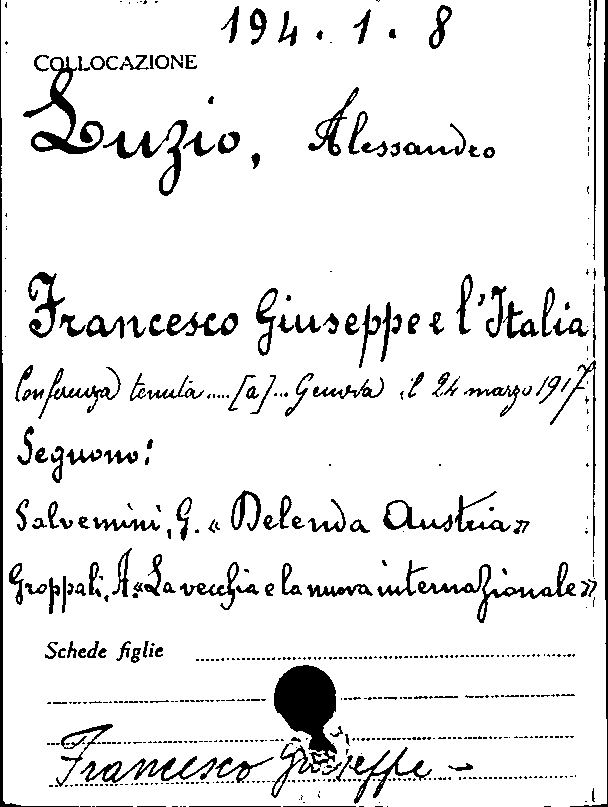 194. 1. 8
COLLOCAZIONE
Luzio, Alessandro
Francesco Giuseppe e l'Italia
Conferenza tenuta ..... [a] ... Genova il 24 marzo 1917
Seguono:
Salvemini, G. « Delenda Austria»
Groppali, A. «La vecchia e la nuova internazionale»
Schede figlie
Francesco Giuseppe -